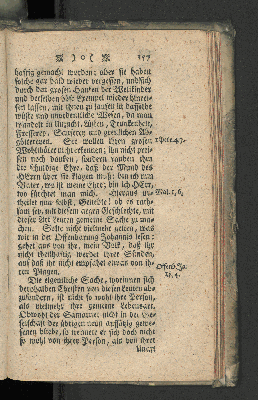 haftig gemacht worden: aber sie haben
solche gar bald wieder vergessen, und sich
durch den grosen Haufen der Weltkinder
und derselben böse Exempel wieder hinreis-
sen lassen, mit ihnen zu laufen in dasselbe
wüste und unordentliche Wesen, da man
wandelt in Unzucht, Lüsten, Trunkenheit,
Fresserey, Sauferey und greulichen Ab-
göttereyen. Sie wollen ihren grosen
Wohlthäter nicht erkennen; ihn nicht prei-
sen noch danken, sondern rauben ihm
die schuldige Ehre, daß der Mund des
HErrn über sie klagen muß: bin ich nun
Vater, wo ist meine Ehre; bin ich HErr,
wo fürchtet man mich. Hieraus ur-
Mal. 1, 6.
theilet nun selbst, Geliebte! ob es rath-
sam sey, mit diesem argen Geschlechte, mit
dieser Art Leuten gemeine Sache zu ma-
chen. Solte nicht vielmehr gelten, was
wir in der Offenbarung Johannis lesen:
gehet aus von ihr, mein Volk, daß ihr
nicht theilhaftig werdet ihrer Sünden,
auf daß ihr nicht empfahet etwas von ih-
ren Plagen.
Die eigentliche Sache, worinnen sich
rechtschaffene Christen von diesen Leuten ab-
zusondern, ist nicht so wohl ihre Person,
als vielmehr ihre gemeine Lebensart.
Obwohl der Samariter nicht in der Ge-
sellschaft der übrigen neun aussätzig gewe-
senen bliebe, so trennete er sich doch nicht
so wohl von ihrer Person, als von ihrer
Undank